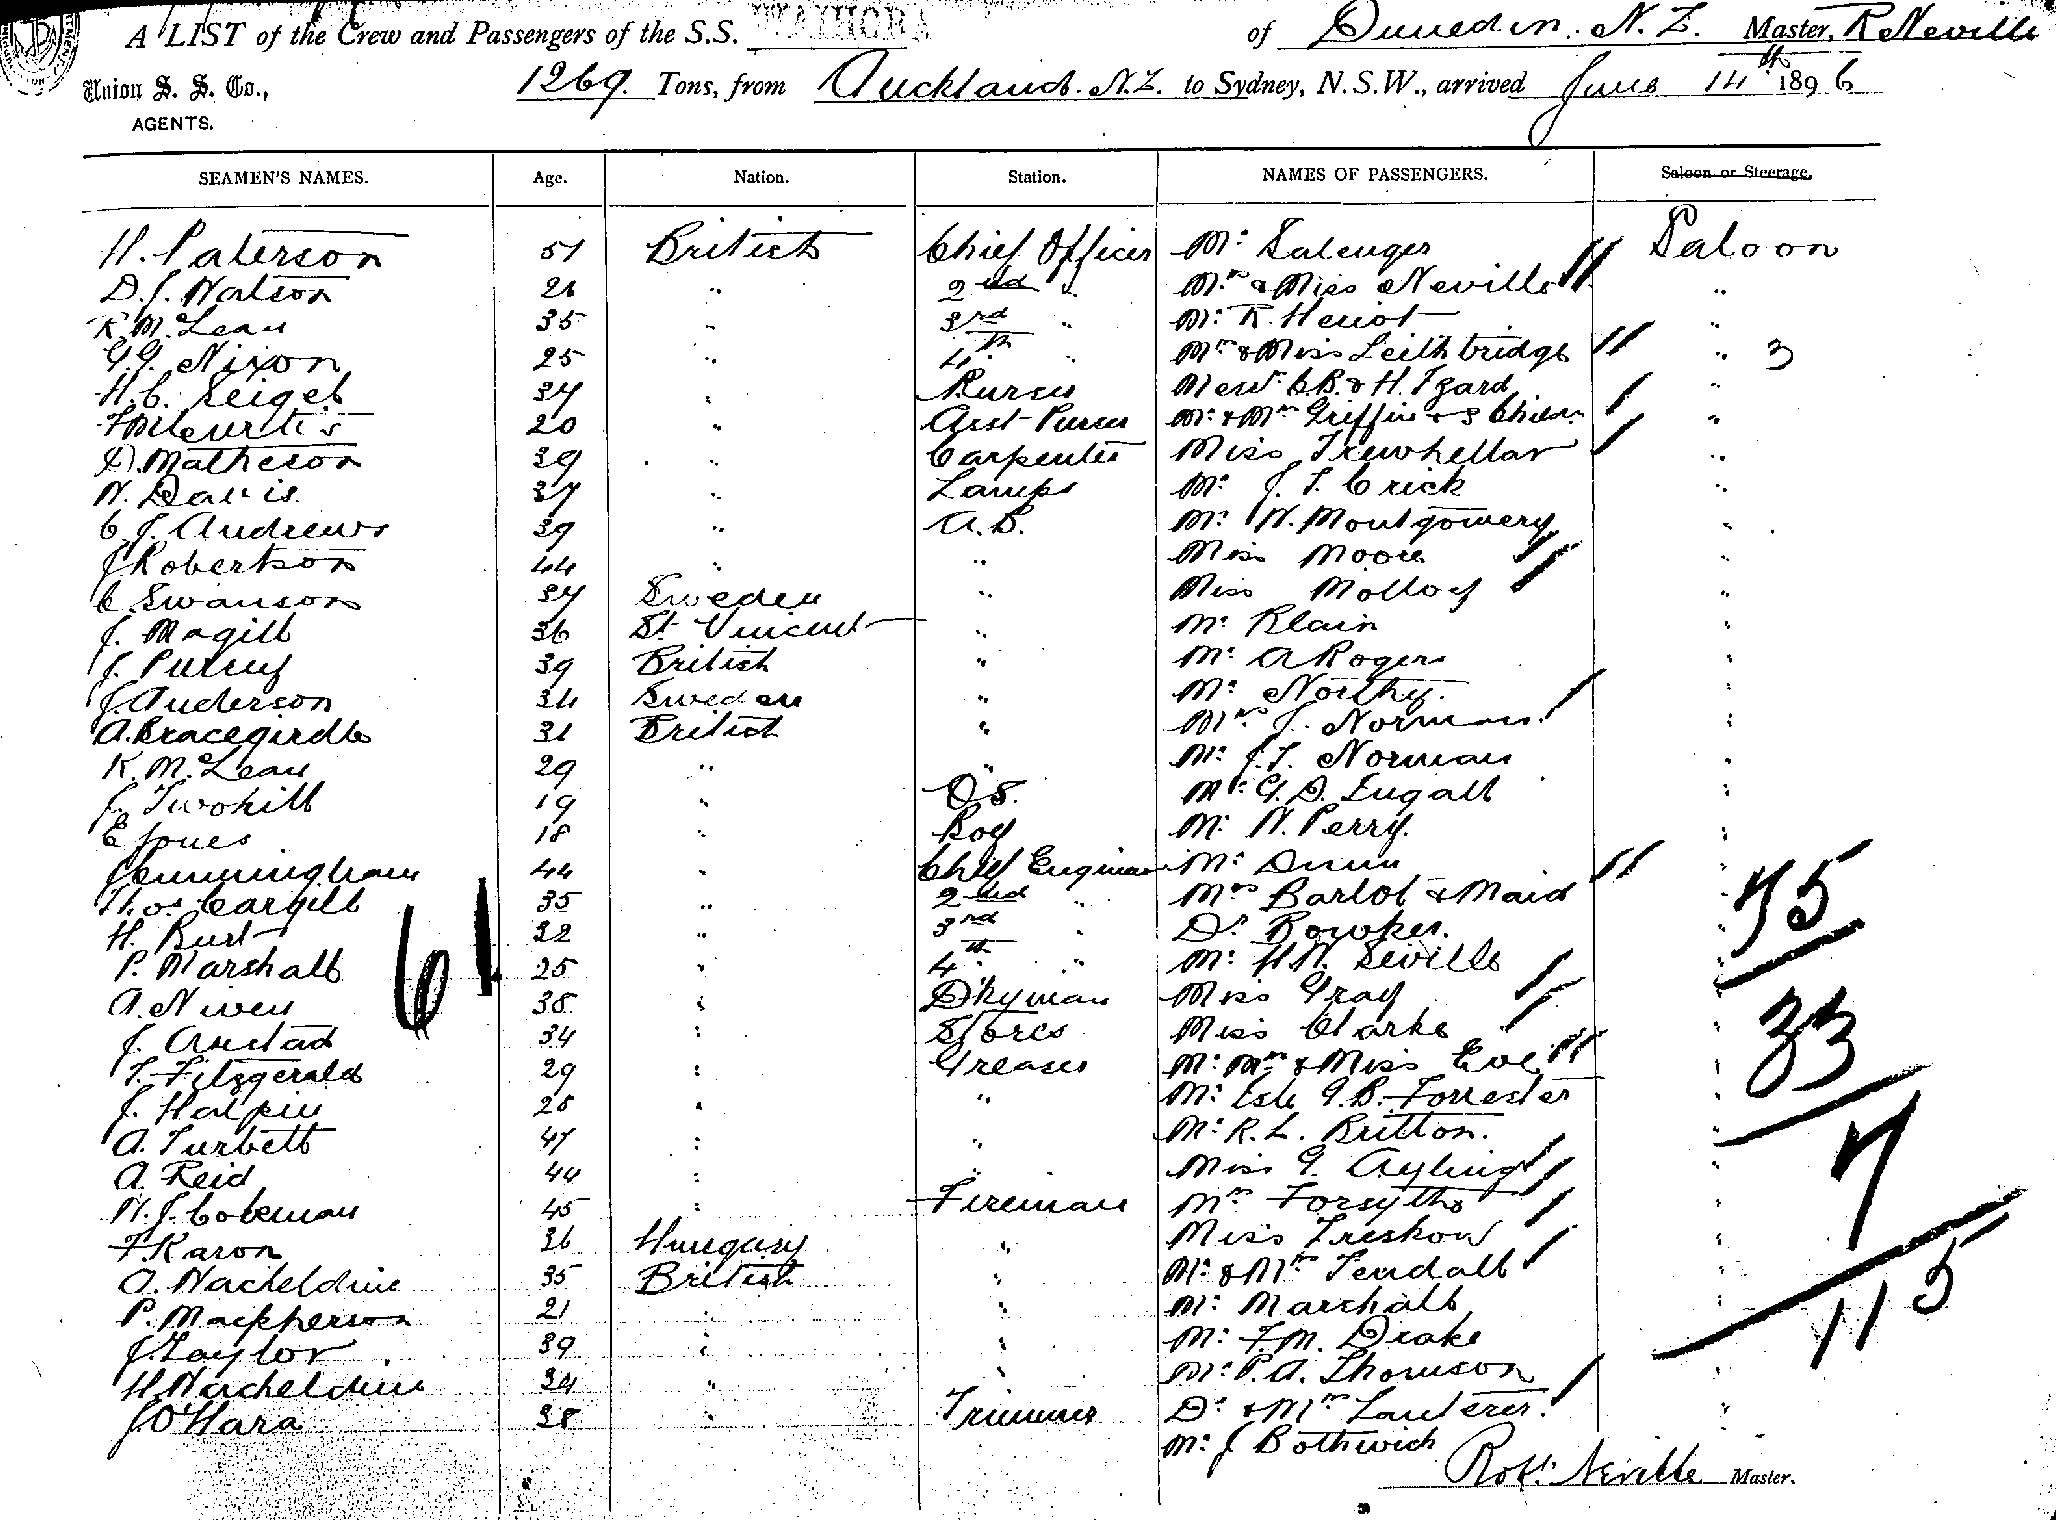 A LIST of the Crew and Passengers of the S.S. WAIHORA of Dunedin. N.Z. Master, R Neville
Union S. S. Co., 1269. Tons, from Auckland. N.Z. to Sydney, N.S.W., arrived June 14th 1896
AGENTS.
SEAMEN'S NAMES. Age. Nation. Station. NAMES OF PASSENGERS. Saloon or Steerage.
H. Paterson 51 British Chief Officer Mr Salenger Saloon
D. J. Watson 26 " 2nd " Mrs & Miss Neville "
K. McLean 35 " 3rd " Mr R. Heriot "
G. G. Nixon 25 " 4th " Mrs & Miss Leithbridge " 3
H. C. Seigel 34 " Purser C. B. & H. Izard "
Curtis 20 " Asst Purser Mr & Mrs Griffin & 3 "
D. Matheson 39 " Carpenter Miss Trewhellar "
W. Davis. 37 " Lamps Mr J. T. Crick "
C. J. Andrews 39 " A.B. Mr W. Montgomery "
J Robertson 44 " " Miss Moore "
C. Swanson 34 Sweden " Miss Molloy "
J. Magill 36 St Vincent " Mr Blain "
J. 39 British " Mr A Rogers "
J. Anderson 34 Sweden " Mr Northy. "
A. Bracegirdle 31 British " Mrs J. Norman. "
K. McLean 29 " " Mr J. T. Norman "
J. Twohill 19 " O.S. Mr G. D. Ingall "
E Jones 18 " Boy Mr W. Perry. "
J Cunningham 44 " Chief Engineer Mr Dunn "
Thos Cargill 35 " 2nd " Mrs Barlot & Maid 75
H. Burt 32 " 3rd " Dr Bowker. "
P. Marshall 61 25 " 4th " Mr H. W. Seville "
A. Niven 38 " Dkyman Miss Gray "
J. Anstad 34 " Stores Miss Clarke 33
T. Fitzgerald 29 " Greaser Mr Mrs & Miss Eve "
J. Halpin 28 " " Mr G. B. Forrester "
A. Turbett 47 " " Mr R. L. Britton. "
A. Reid 44 " " Miss G. Ayling 7
W. J. Coleman 45 " Fireman Mrs Forsythe "
F Karon 36 Hungary " Miss Treskow "
A. Hacheldine 35 British " Mr & Mrs Tendall "
P. Macpherson 21 " " Mr Marshall 115
J. Taylor 39 " " Mr F. M. Drake "
H. Hacheldine 34 " " Mr P. A. Thomson "
J. O'Hara 38 " Trimmer Dr & Mrs Lauterer. "
Mr J Bothwick "
Robt. Neville Master.